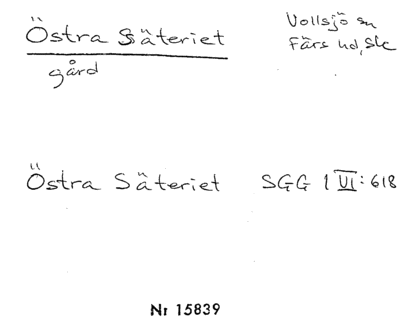 Östra Säteriet
Vollsjö sn
Färs hd, Sk
gård
Östra Säteriet SGG 1 VI: 618
Nr 15839